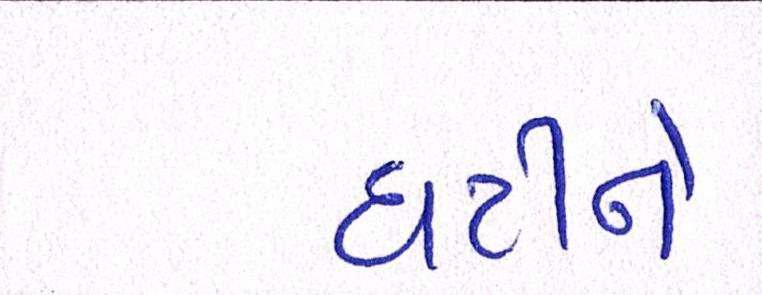 ઘટીને